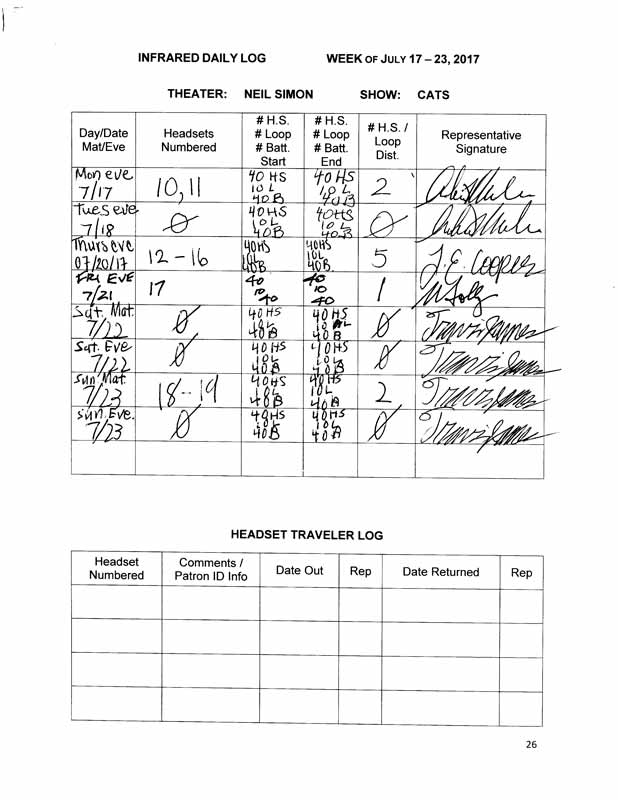 INFRARED DAILY LOG WEEK OF JULY 17 – 23, 2017
THEATER: NEIL SIMON SHOW: CATS
Day/Date Mat/Eve Headsets Numbered # H.S. # Loop # Batt. Start # H.S. # Loop # Batt. End # H.S. / Loop Dist. Representative Signature
Mon eve 7/17 10, 11 40 HS 10 L 40 B 40 HS 10 L 40 B 2
Tues eve 7/18 Ø 40 HS 10 L 40 B 40 HS 10 L 40 B Ø
Thurs eve 07/20/17 12 – 16 40HS 10L 40B 40HS 10L 40B 5 J.E. Cooper
FRI EVE 7/21 17 40 10 40 40 10 40 1
Sat. Mat. 7/22 Ø 40 HS 10L 40B 40 HS 10 L 40 B Ø Travis James
Sat. Eve 7/22 Ø 40 HS 10L 40B 40 HS 10L 40B Ø Travis James
Sun Mat. 7/23 18 -- 19 40HS 10L 40B 40HS 10L 40B 2 Travis James
Sun. Eve. 7/23 Ø 40HS 10L 40B 40HS 10L 40B Ø Travis James
HEADSET TRAVELER LOG
Headset Numbered Comments / Patron ID Info Date Out Rep Date Returned Rep
26